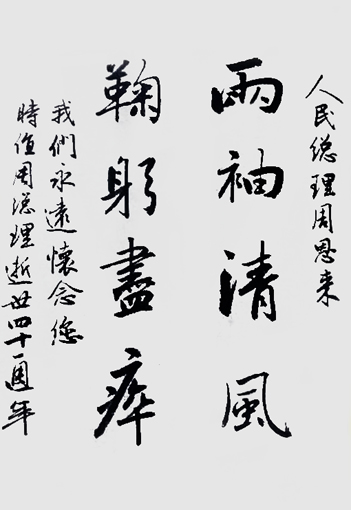 人民总理周恩来
两袖清風
鞠躬盡瘁
我們永遠懷念您
時值周总理逝世四十一週年